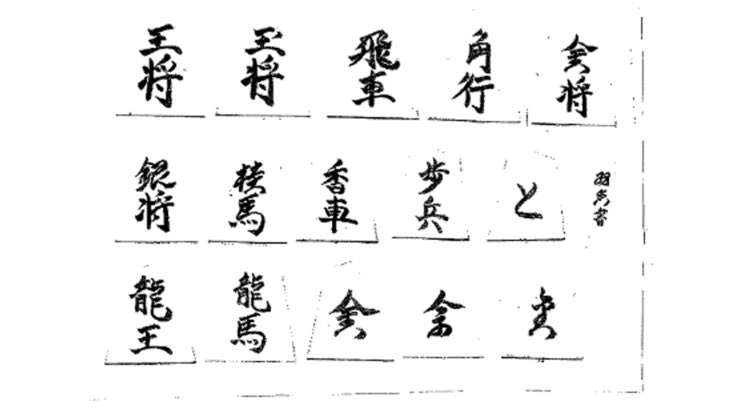 王将 玉将 飛車 角行 金将
銀将 桂馬 香車 歩兵 と
龍王 龍馬 金